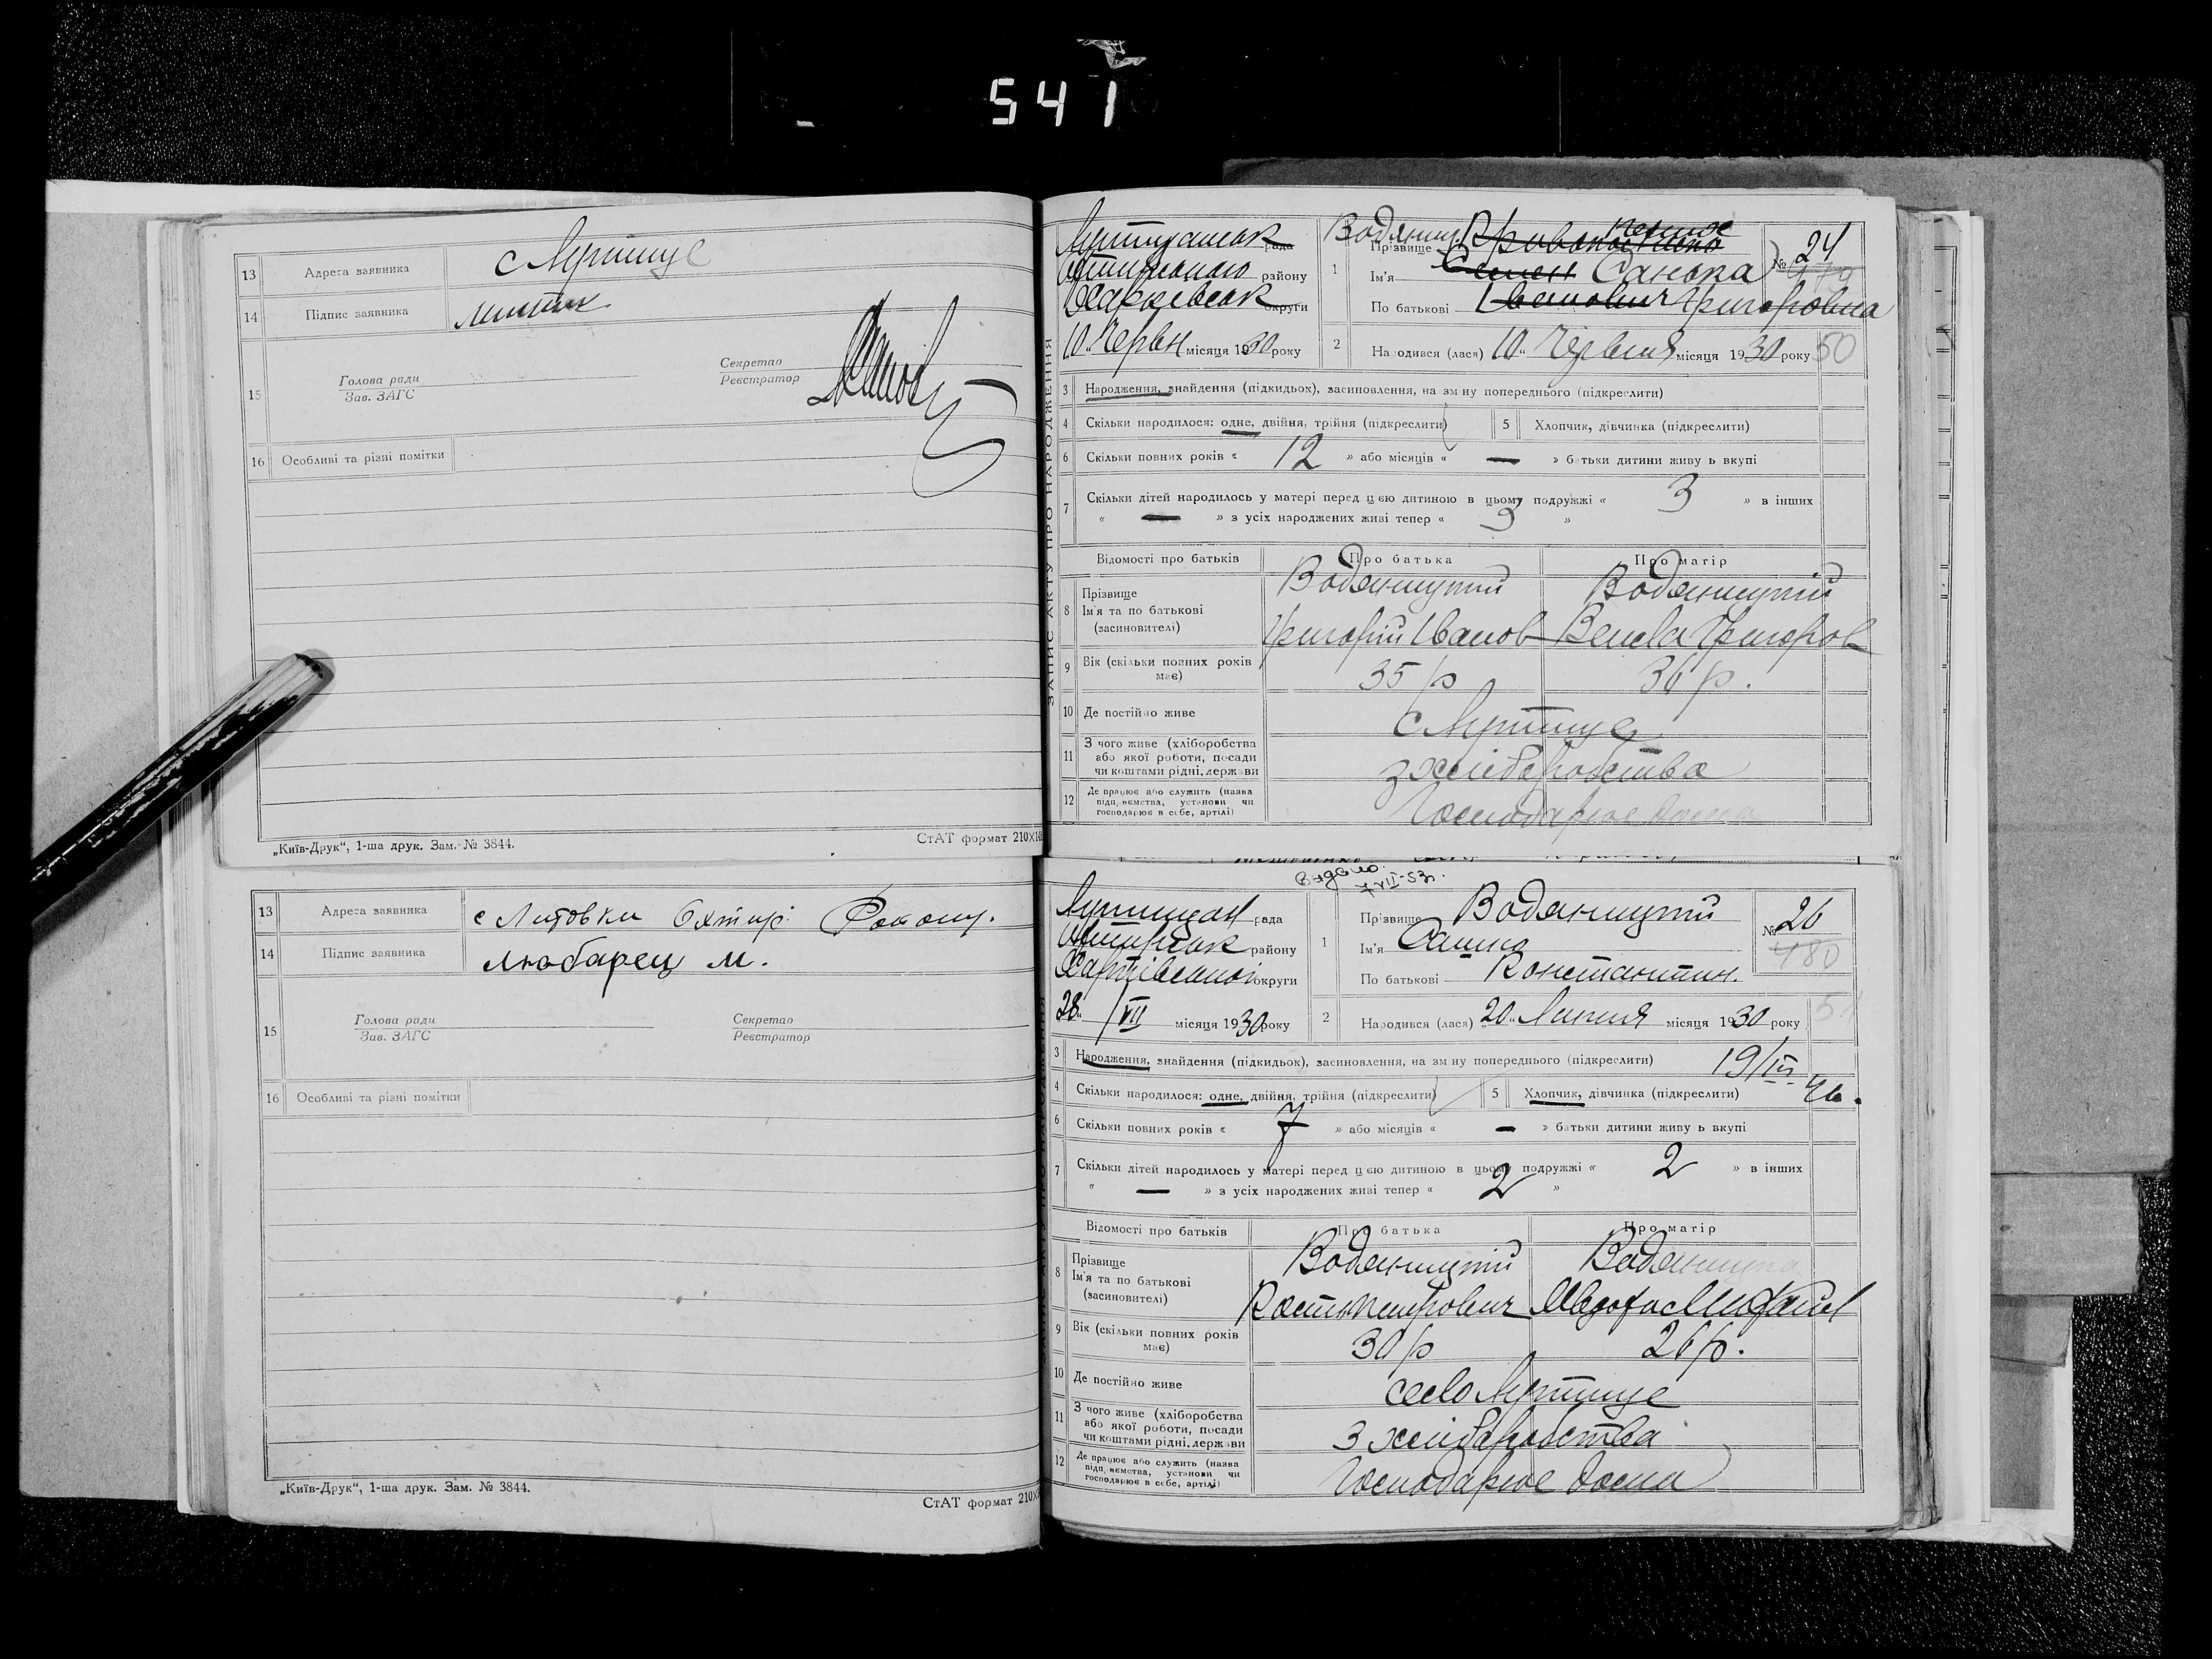 541
13 Адреса заявника с Лутище
14 Підпис заявника
15 Голова ради
Зав. ЗАГС
Секретар
Реєстратор
16 Особливі та різні помітки
„Київ-Друк“, 1-ша друк. Зам. № 3844.
СтАТ формат 210Х
ЗАПИС АКТУ ПРО НАРОДЖЕННЯ
рада
району
округи
10 Червн місяця 1930 року
1 Прізвище Водяниц.
Ім'я Семен Санька
По батькові Іванович Григоровна
№ 24
2 Народився (лася) „10“ Червня місяця 1930 року 50
3 Народження, знайдення (підкидьок), засиновлення, на зміну попереднього (підкреслити)
4 Скільки народилося: одне, двійня, трійня (підкреслити) 5 Хлопчик, дівчинка (підкреслити)
6 Скільки повних років « 12 » або місяців « — » батьки дитини живуть вкупі
7 Скільки дітей народилось у матері перед цією дитиною в цьому подружжі « 3 » в інших
« — » з усіх народжених живі тепер « 3 »
Відомості про батьків Про батька Про матір
8 Прізвище Водяницкій Водяницкій
Ім'я та по батькові Григорій Іванов Григоров
(засиновителі)
9 Вік (скільки повних років 35 р 36 р.
має)
10 Де постійно живе с Лутище
11 З чого живе (хліборобства
або якої роботи, посади з хліборобства
чи коштами рідні, держави
12 Де працює або служить (назва
підприємства, установи чи Господарює дома
господарює в себе, артілі)
13 Адреса заявника с Литовки Охтир
14 Підпис заявника Любарец М.
15 Голова ради
Зав. ЗАГС
Секретар
Реєстратор
16 Особливі та різні помітки
„Київ-Друк“, 1-ша друк. Зам. № 3844.
СтАТ формат 210Х
Видано
7 VII-53.
рада
району
округи
28 /VII місяця 1930 року
1 Прізвище Водяницкій
Ім'я
По батькові Константин.
№ 26
480
2 Народився (лася) „20“ Липня місяця 1930 року
3 Народження, знайдення (підкидьок), засиновлення, на зміну попереднього (підкреслити)
4 Скільки народилося: одне, двійня, трійня (підкреслити) 5 Хлопчик, дівчинка (підкреслити)
6 Скільки повних років « 7 » або місяців « — » батьки дитини живуть вкупі
7 Скільки дітей народилось у матері перед цією дитиною в цьому подружжі « 2 » в інших
« — » з усіх народжених живі тепер « 2 »
Відомості про батьків Про батька Про матір
8 Прізвище Водяницкій Водяницка
Ім'я та по батькові Кость Петрович
(засиновителі)
9 Вік (скільки повних років 30 р 26 р.
має)
10 Де постійно живе село Лутище
11 З чого живе (хліборобства
або якої роботи, посади З хліборобства
чи коштами рідні, держави
12 Де працює або служить (назва
підприємства, установи чи Господарює дома
господарює в себе, артілі)